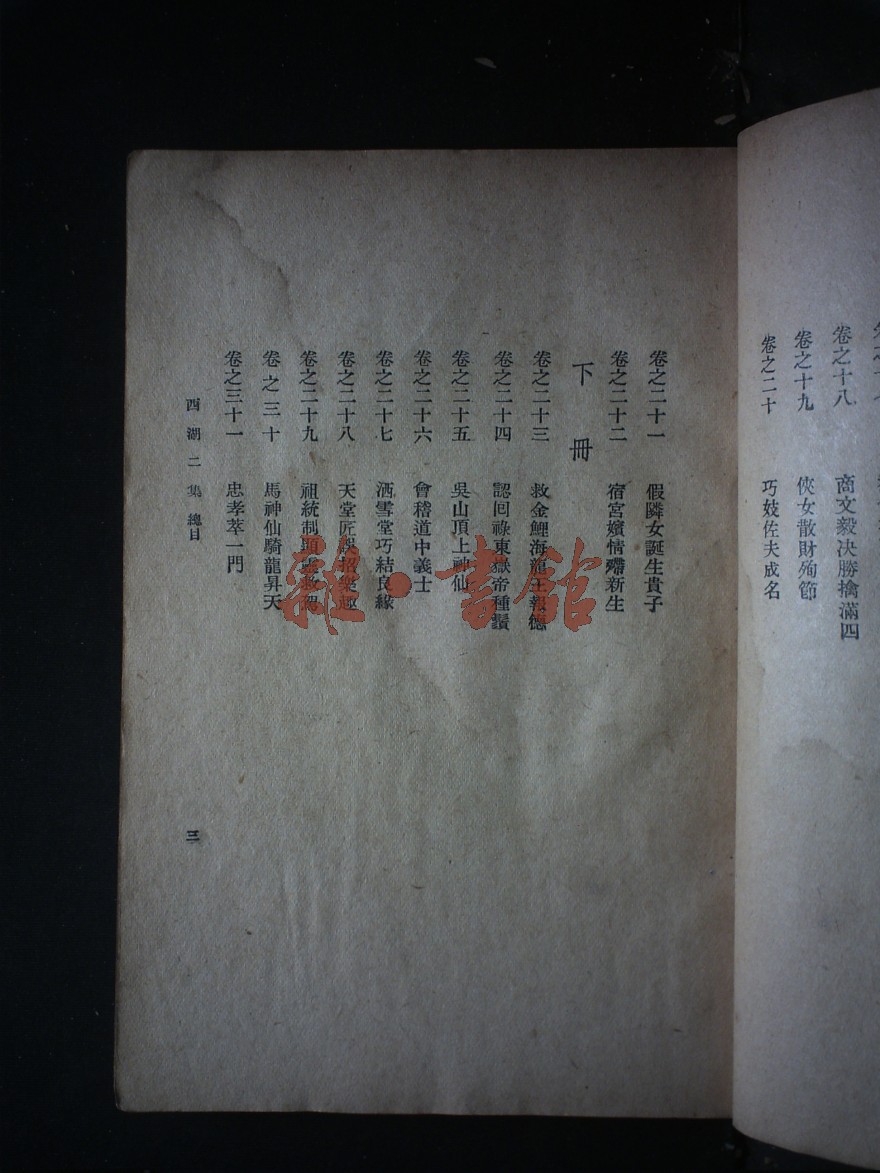 卷之十八　商文毅決勝擒滿四
卷之十九　俠女散財殉節
卷之二十　巧妓佐夫成名
卷之二十一　假隣女誕生貴子
卷之二十二　宿宮嬪情殢新生
下冊
卷之二十三　救金鯉海龍王報德
卷之二十四　認回祿東嶽帝種鬚
卷之二十五　吳山頂上神仙
卷之二十六　會稽道中義士
卷之二十七　洒雪堂巧結良緣
卷之二十八　天臺匠誤招樂趣
卷之二十九　祖統制顯靈救駕
卷之三十　馬神仙騎龍昇天
卷之三十一　忠孝萃一門
西湖二集 總目
三
雜·書館